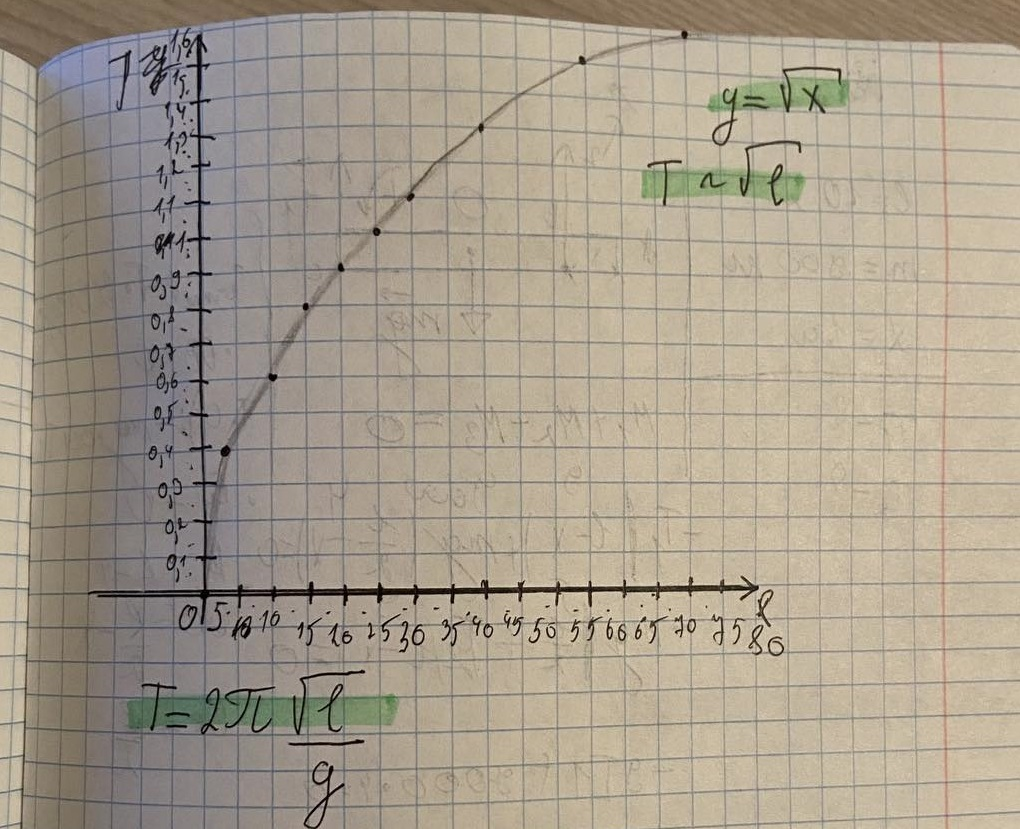 T
1,6
1,5
y = √x
1,4
1,3
T ~ √l
1,2
1,1
1
0,9
0,8
0,7
0,6
0,5
0,4
0,3
0,2
0,1
0 5 10 15 20 25 30 35 40 45 50 55 60 65 70 75 80
l
T = 2π √l
g